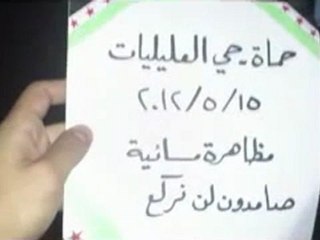 حماة - حي العليليات
٢٠١٢/٥/١٥
مظاهرة مسائية
صامدون لن نركع